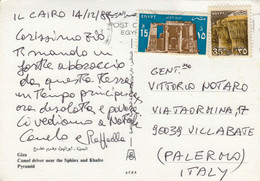 IL CAIRO 14/12/8
Carissimo Zio
Ti mando un
forte abbraccio
da questa terra
un tempo principesca
ora desolata e povera
Ci vediamo a Natale
Camelo e Raffaella
POST C
EGYP
EGYPT
مصر
15
EGYPT
35
GENT.mo
VITTORIO NOTARO
VIA TAORMINA, 17
90039 VILLABATE
(PALERMO)
ITALY
Giza
Camel driver near the Sphinx and Khafre
Pyramid